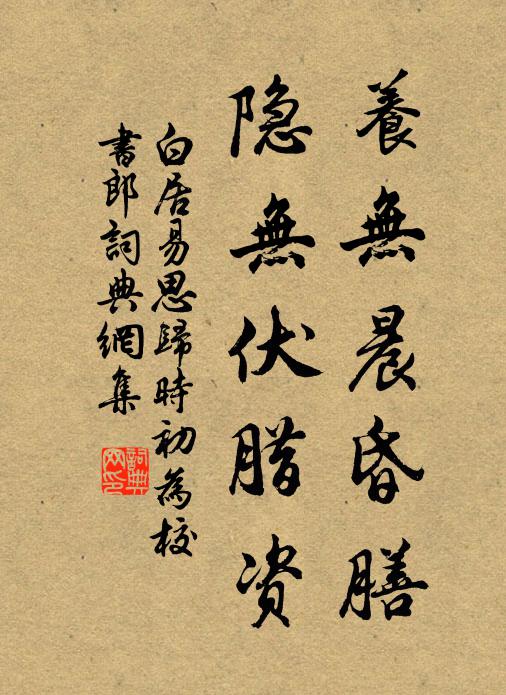 養無晨昏膳
隐無伏腊资
白居易思歸時初為校
書郎詞典網集
詞典网印